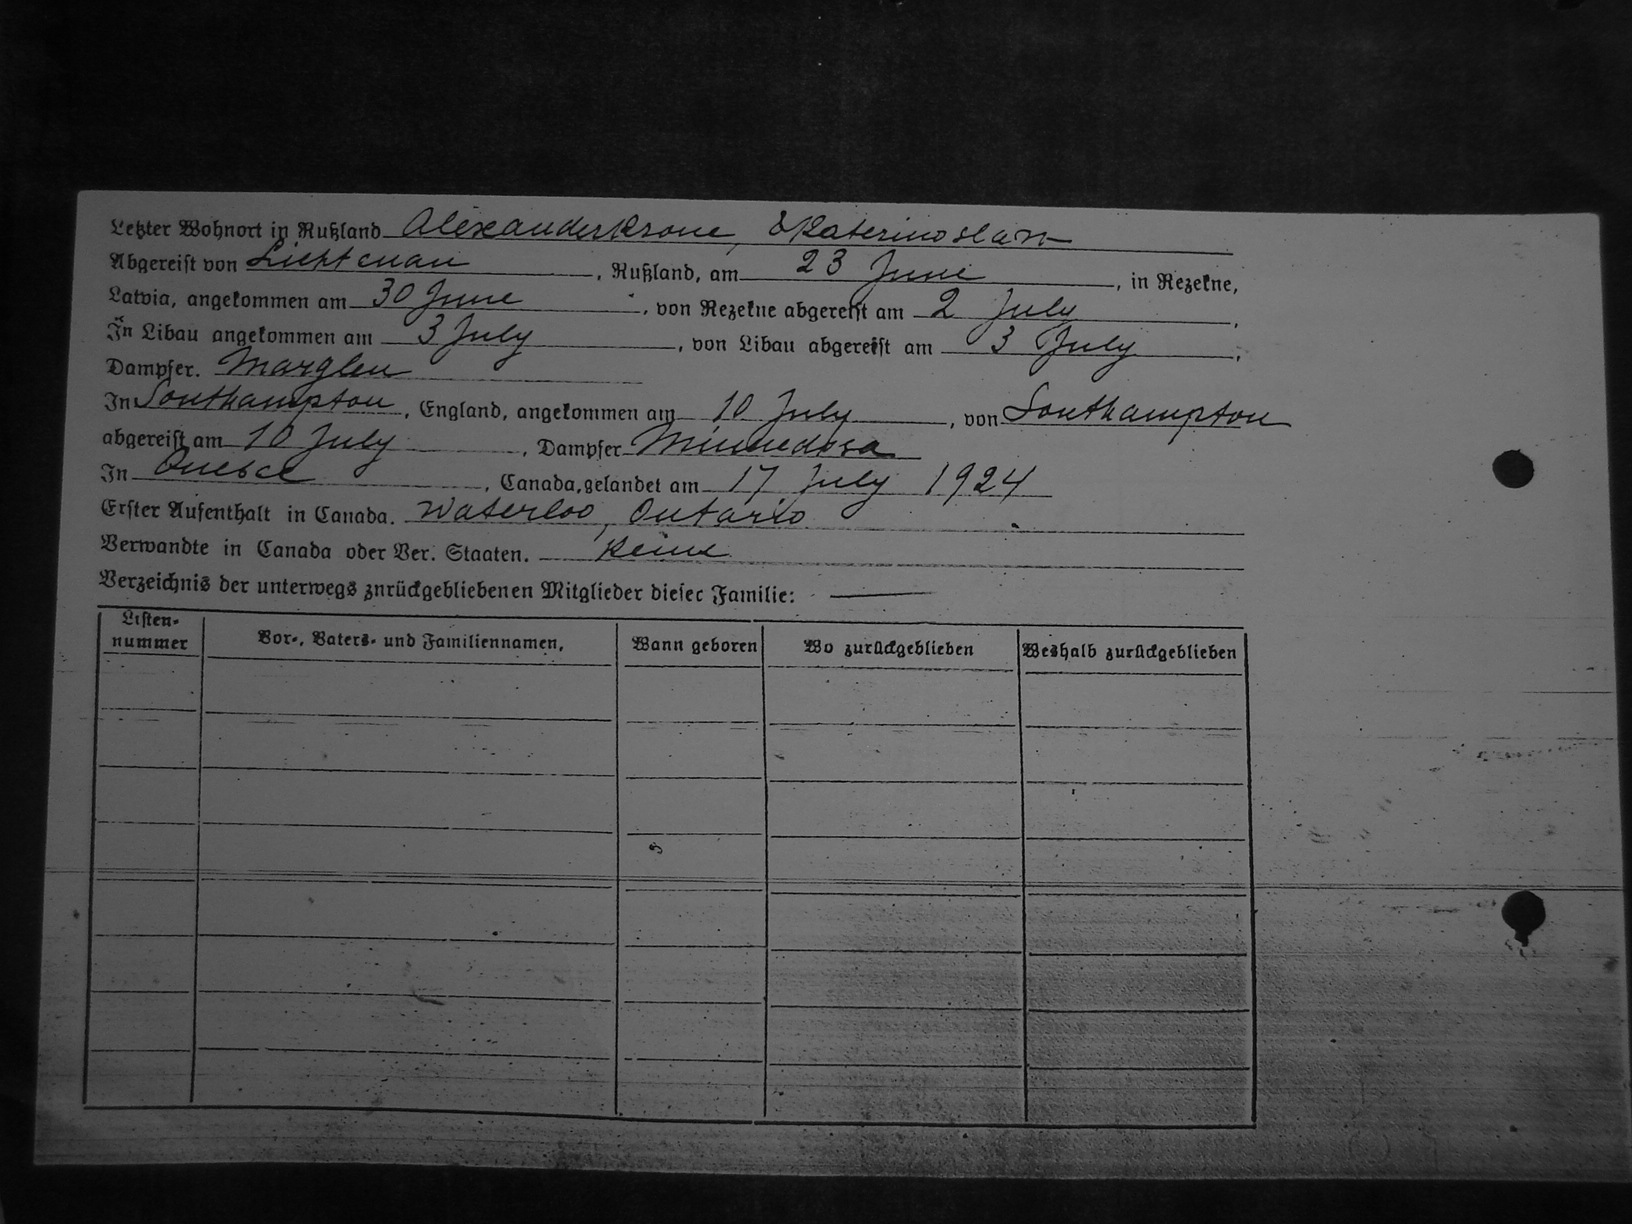 Letzter Wohnort in Rußland Alexanderkrone, Ekaterinoslaw
Abgereist von Lichtenau, Rußland, am 23 June, in Rezekne,
Latvia, angekommen am 30 June, von Rezekne abgereist am 2 July,
In Libau angekommen am 3 July, von Libau abgereist am 3 July,
Dampfer. Marglen
In Southampton, England, angekommen am 10 July, von Southampton
abgereist am 10 July, Dampfer Minnedosa
In Quebec, Canada, gelandet am 17 July 1924
Erster Aufenthalt in Canada. Waterloo, Ontario
Verwandte in Canada oder Ver. Staaten. Keine
Verzeichnis der unterwegs znrückgebliebenen Mitglieder diesec Familie: —
Listen-
nummer
Vor-, Vaters- und Familiennamen,
Wann geboren
Wo zurückgeblieben
Weshalb zurückgeblieben